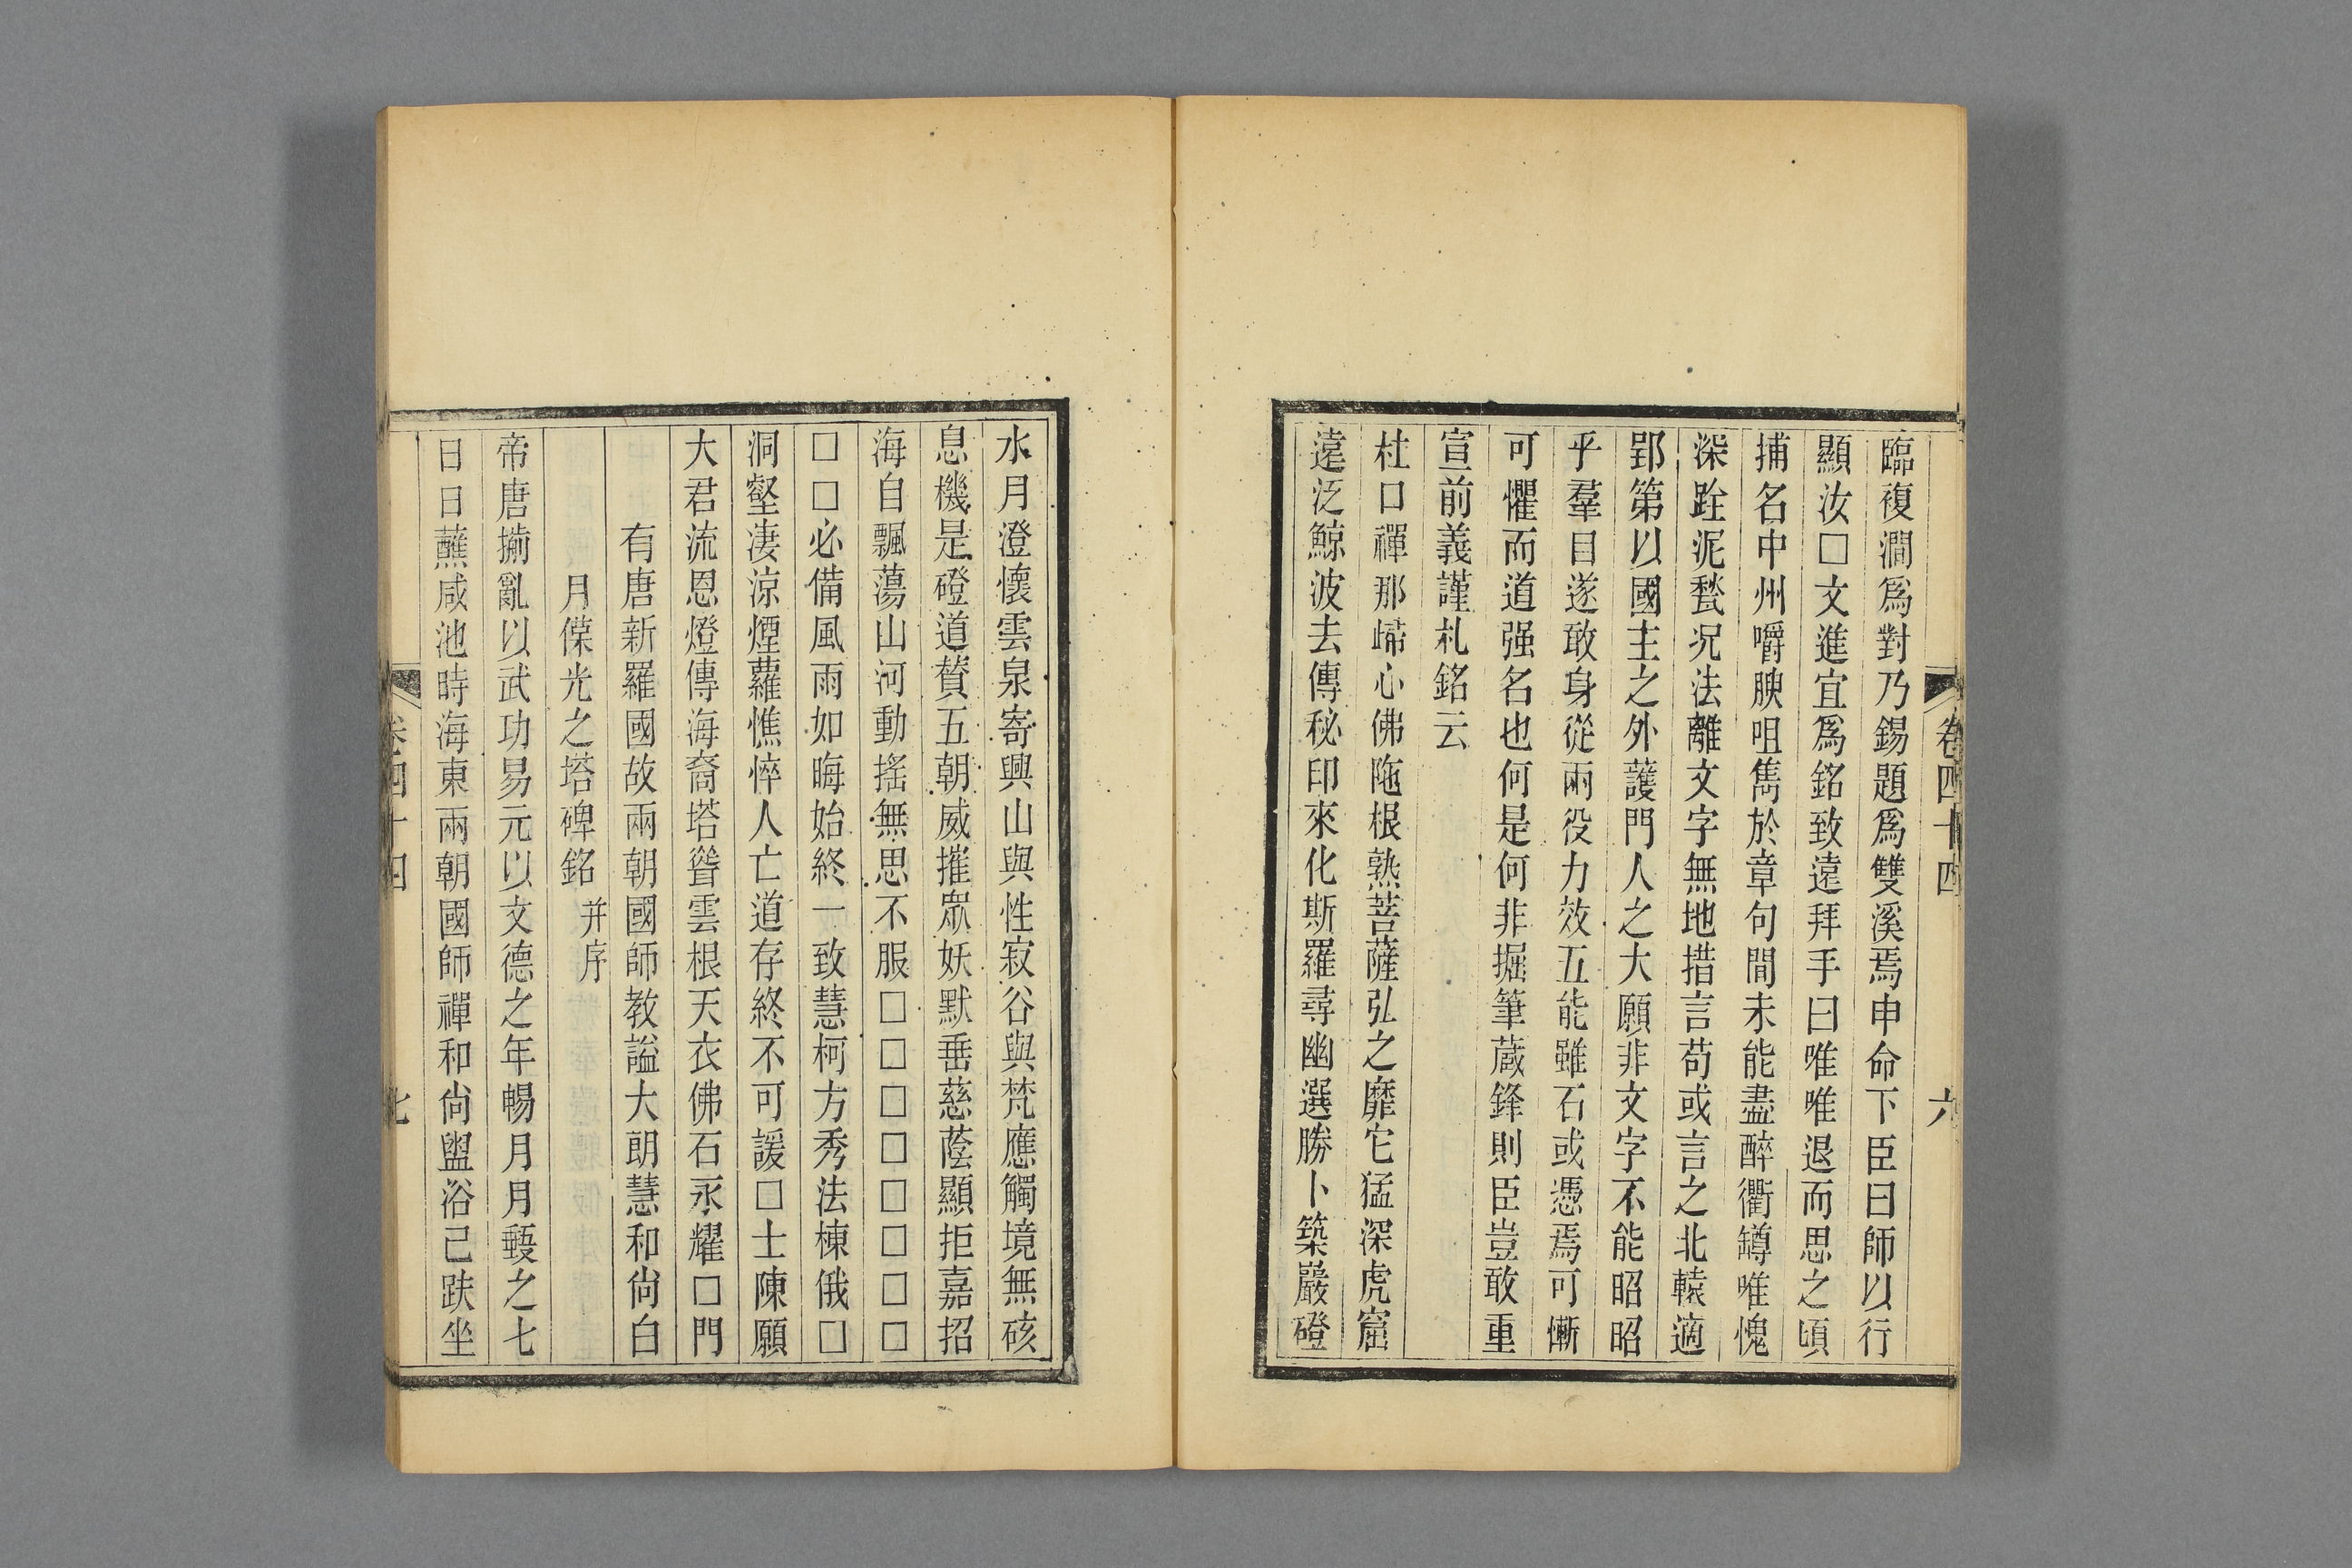 卷四十四
六
臨複澗爲對乃錫題爲雙溪焉申命下臣曰師以行
顯汝□文進宜爲銘致遠拜手曰唯唯退而思之頃
捕名中州嚼腴咀雋於章句間未能盡醉衢罇唯愧
深跧泥甃況法離文字無地措言苟或言之北轅適
郢第以國主之外護門人之大願非文字不能昭昭
乎羣目遂敢身從兩役力效五能雖石或憑焉可慚
可懼而道强名也何是何非掘筆藏鋒則臣豈敢重
宣前義謹札銘云
杜口禪那歸心佛陁根熟菩薩弘之靡它猛深虎窟
遠泛鯨波去傳秘印來化斯羅尋幽選勝卜築巖磴
水月澄懷雲泉寄興山與性寂谷與梵應觸境無硋
息機是磴道贊五朝威摧衆妖默垂慈蔭顯拒嘉招
海自飄蕩山河動搖無思不服□□□□□□□□
□□必備風雨如晦始終一致慧柯方秀法棟俄□
洞壑淒涼煙蘿憔悴人亡道存終不可諼□士陳願
大君流恩燈傳海裔塔聳雲根天衣佛石永耀□門
有唐新羅國故兩朝國師教謚大朗慧和尙白
月葆光之塔碑銘 并序
帝唐揃亂以武功易元以文德之年暢月月蝨之七
日日蘸咸池時海東兩朝國師禪和尙盥浴已趺坐
卷四十四
七